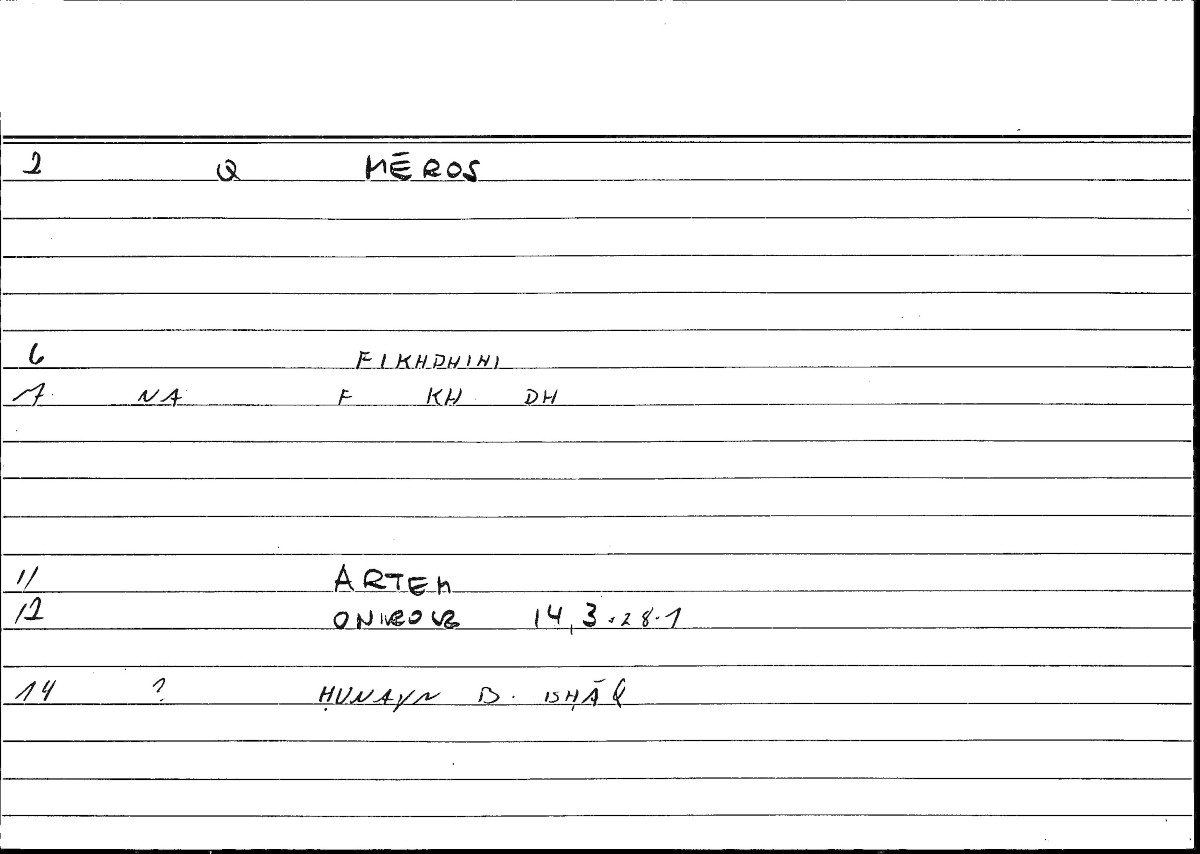 2 Q MĒROS
6 FIKHDHIHI
7 NA F KH DH
11 ARTEM
12 14,3.28.1
14 ? ḤUNAYN B. ISḤĀQ